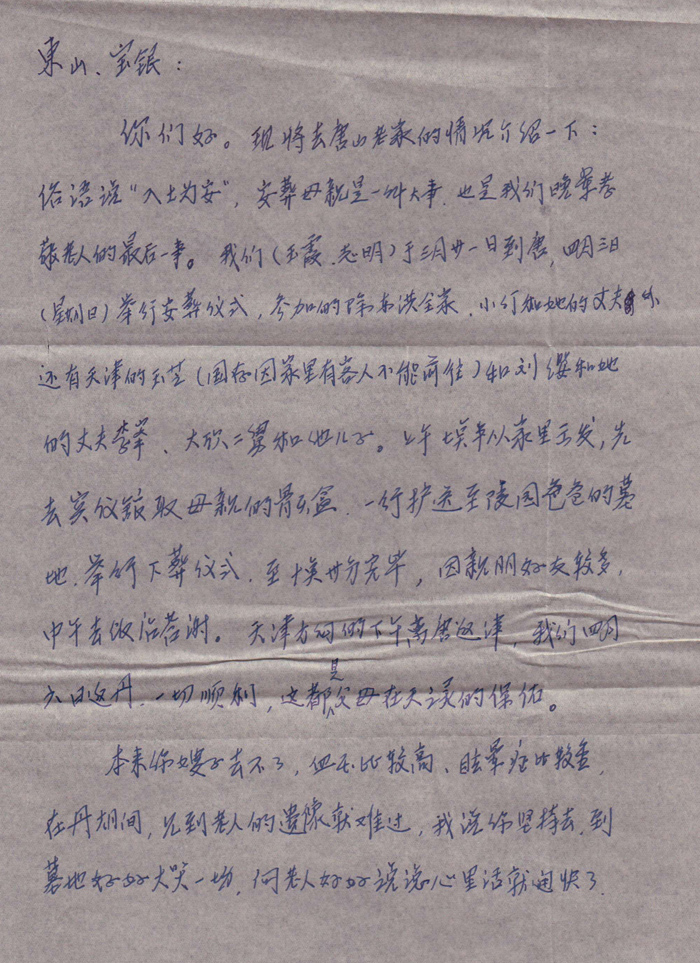 東山、宝银：
你们好。现将去唐山老家的情况介绍一下：
俗语说“入土为安”，安葬母亲是一件大事，也是我们晚辈孝
敬老人的最后一事。我们（玉霞、志明）于三月廿一日到唐，四月三日
（星期日）举行安葬仪式，参加的除东洪全家、小行和她的丈夫外
还有天津的玉芝（国存因家里有客人不能前往）和刘缨和她
的丈夫李军、大欣二舅和他儿子。上午七点半从家里出发，先
去宾仪馆取母亲的骨灰盒，一行护送至陵园爸爸的墓
地，举行下葬仪式，至十点廿分完毕，因亲朋好友较多，
中午去饭店答谢。天津方面的下午离唐返津，我们四月
六日返丹，一切顺利，这都是父母在天之灵的保佑。
本来你嫂子去不了，血压比较高、眩晕症比较重，
在丹期间，见到老人的遗像就难过，我说你坚持去，到
墓地好好大哭一场，向老人好好说说心里话就痛快了，